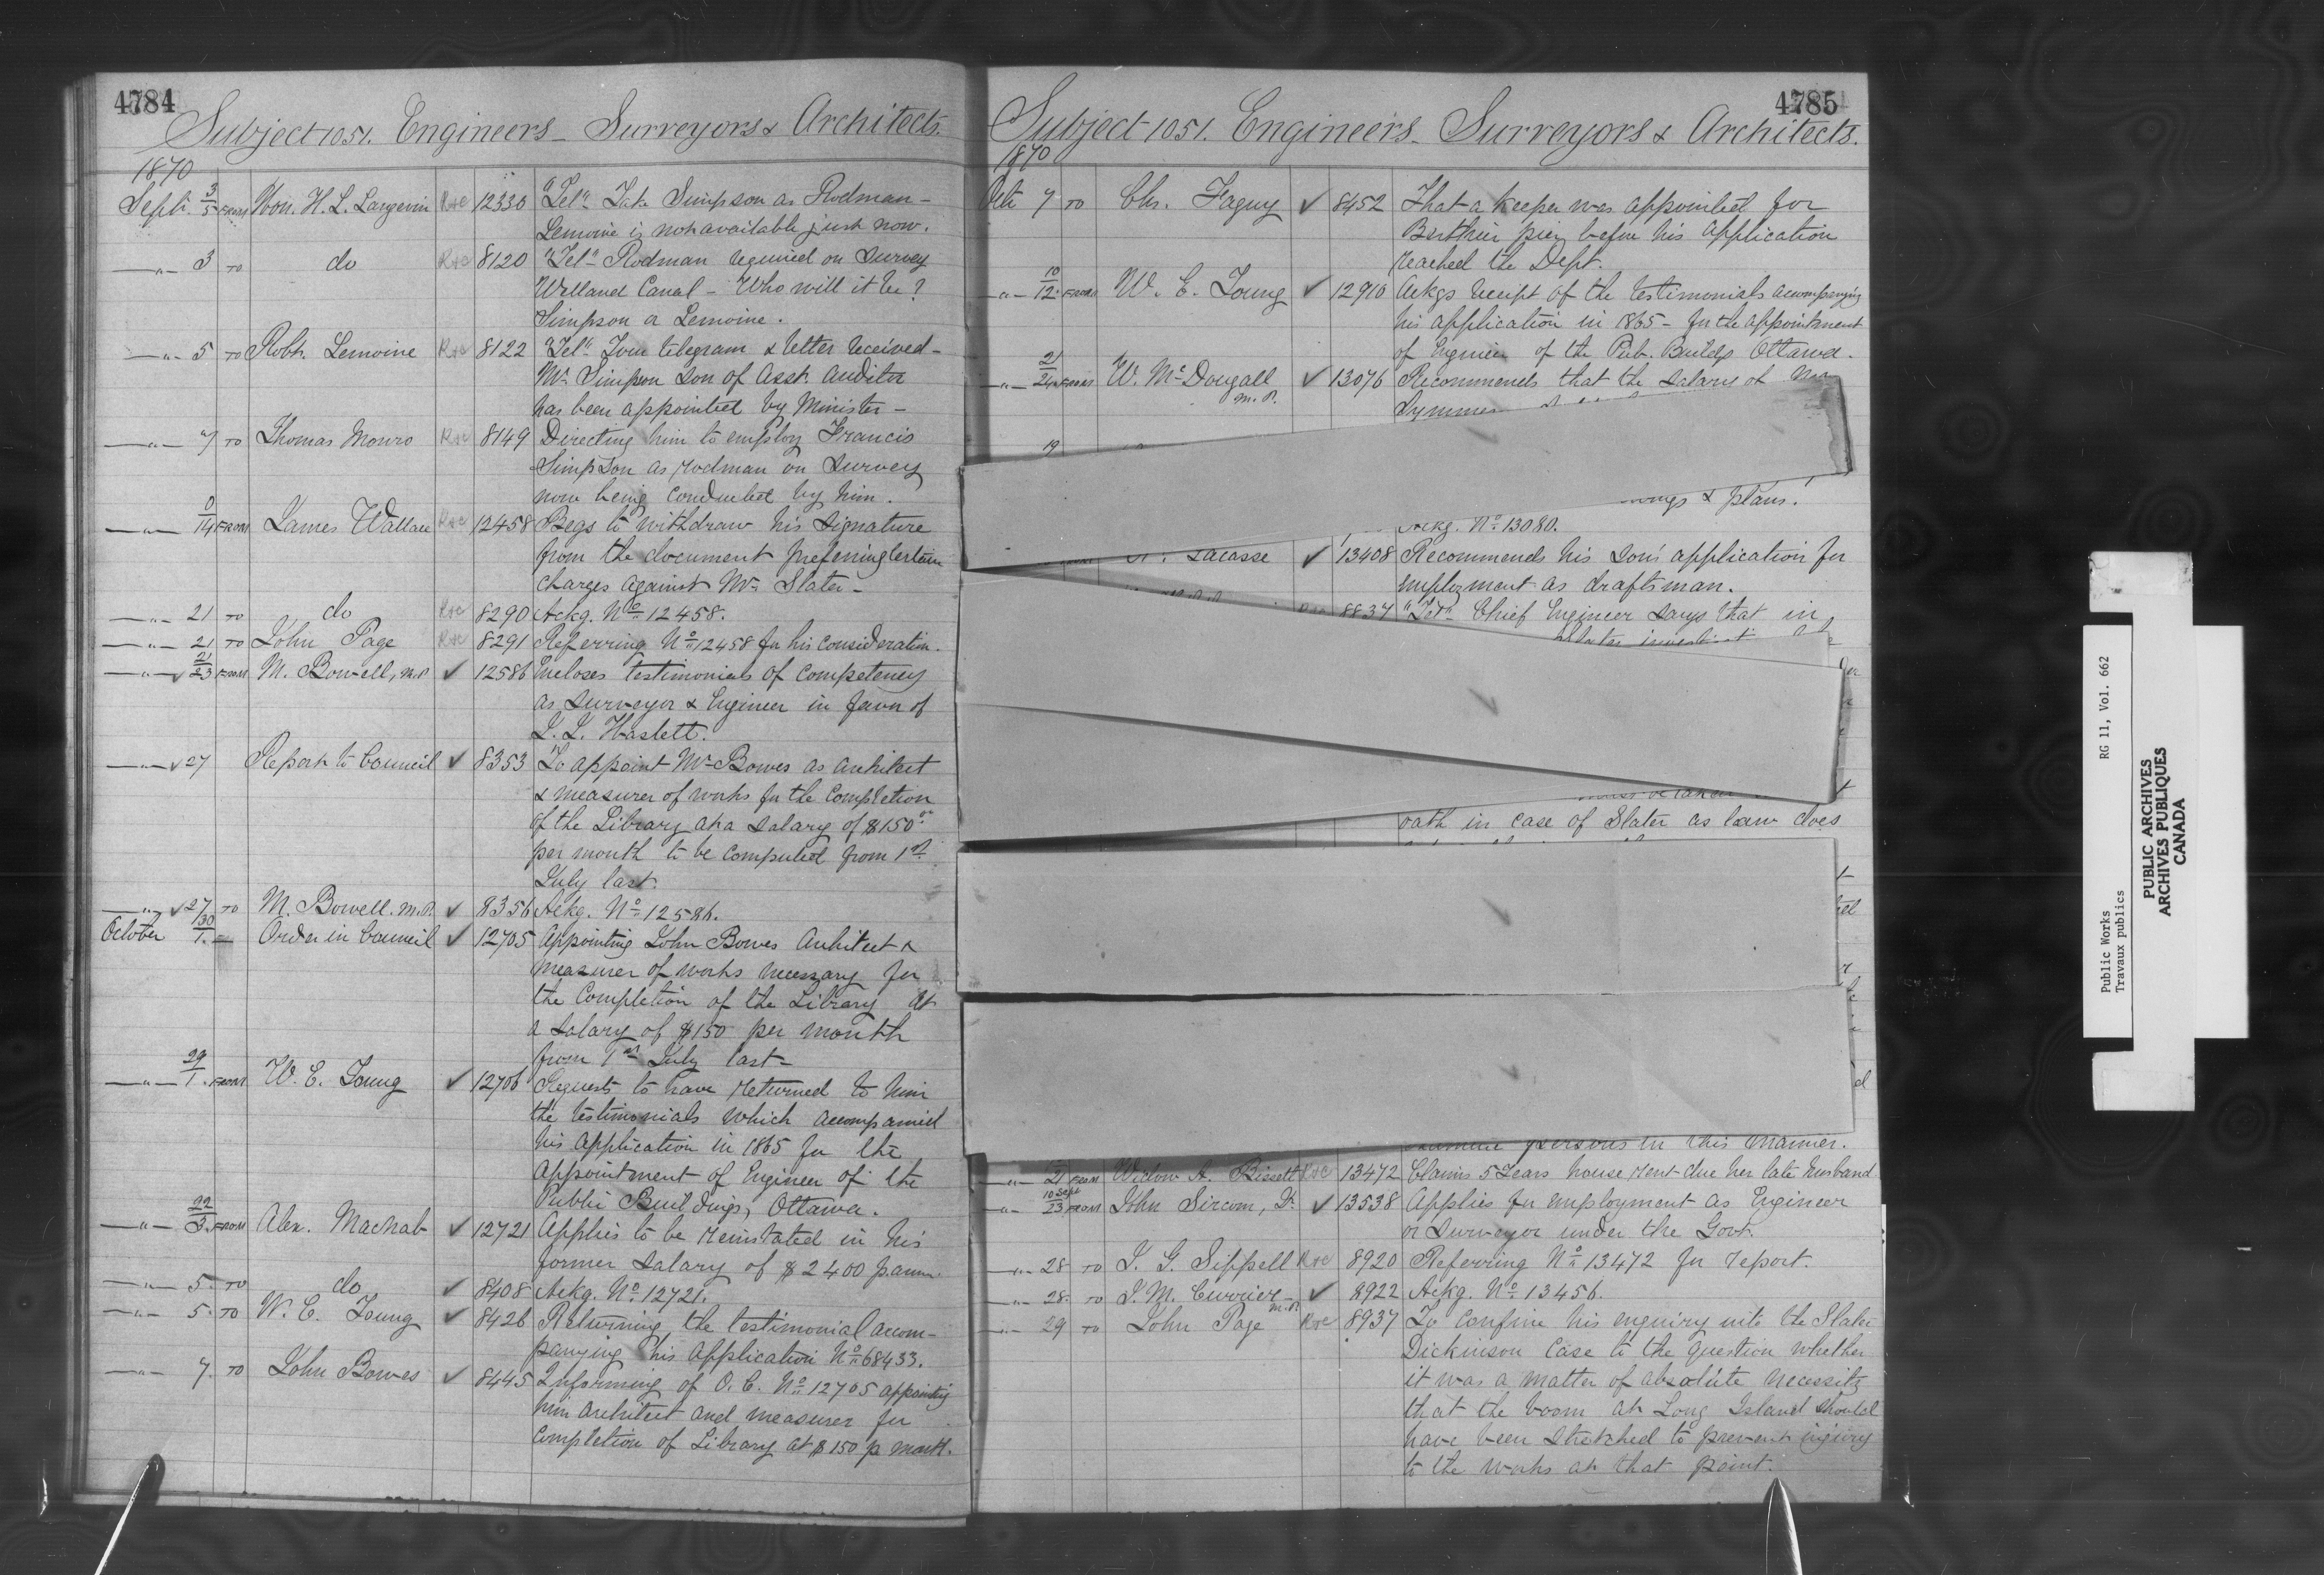 4784
Subject 1051. Engineers - Surveyors & Architects.
1870
Sept. 3/5 FROM Hon. H. L. Langevin Rec 12330 "Tel" Take Simpson as Rodman -
Lemoine is not available just now.
-"- 3 TO do Rec 8120 "Tel" Rodman required on Survey
Welland Canal - Who will it be?
Simpson or Lemoine.
-"- 5 TO Robt. Lemoine Rec 8122 "Tel" Your telegram & letter received -
Mr. Simpson son of Asst. Auditor
has been appointed by Minister -
-"- 7 TO Thomas Monro Rec 8149 Directing him to employ Francis
Simpson as rodman on survey
now being conducted by him.
-"- 14 FROM James Wallace Rec 12458 Begs to withdraw his signature
from the document preferring certain
charges against Mr. Slater -
-"- 21 TO do Rec 8290 Ackg. No. 12458.
-"- 21 TO John Page Rec 8291 Referring No. 12458 for his consideration.
-"- 21/23 FROM M. Bowell, M.P. ✓ 12586 Encloses testimonials of competency
as Surveyor & Engineer in favor of
J. J. Haslett.
-"- ✓ 27 Report to Council ✓ 8353 To appoint Mr. Bowes as Architect
& measurer of works for the completion
of the Library at a salary of $150.00
per month to be computed from 1st
July last.
-"- ✓ 27 TO M. Bowell. M.P. ✓ 8356 Ackg. No. 12586.
October 30/1. - Order in Council ✓ 12705 Appointing John Bowes Architect &
measurer of works necessary for
the Completion of the Library at
a salary of $150 per month
from 1st July last -
-"- 29/1. FROM W. E. Young ✓ 12706 Requests to have returned to him
the testimonials which accompanied
his application in 1865 for the
appointment of Engineer of the
Public Buildings, Ottawa.
-"- 22/3. FROM Alex. Macnab ✓ 12721 Applies to be reinstated in his
former salary of $2400 p. ann.
-"- 5. TO do ✓ 8408 Ackg. No. 12721.
-"- 5. TO W. E. Young ✓ 8426 Returning the testimonial accom-
panying his application No. 68433.
-"- 7. TO John Bowes ✓ 8445 Informing of O. C. No. 12705 appointing
him Architect and measurer for
completion of Library at $150 p month.
4785
Subject 1051. Engineers - Surveyors & Architects.
1870
Oct. 7 TO Chs. Faguy ✓ 8452 That a keeper was appointed for
Berthier pier before his application
reached the Dept.
-"- 10/12. FROM W. E. Young ✓ 12910 Ackgs receipt of the testimonials accompanying
his application in 1865 - for the appointment
of Engineer of the Pub. Buildgs Ottawa.
-"- 21/24 FROM W. McDougall M.P. ✓ 13076 Recommends that the salary of
19
& plans.
Ackg. No. 13080.
Lacasse ✓ 13408 Recommends his son's application for
employment as draftsman.
Rec 8837 "Tel" Chief Engineer says that in
oath in case of Slater as law does
persons in this manner.
-"- 21 FROM Widow A. Bissett Rec 13472 Claims 5 Years house rent due her late husband
-"- 10 Sept/23 FROM John Sircom, Jr. ✓ 13538 Applies for employment as Engineer
or Surveyor under the Govt.
-"- 28 TO J. G. Sippell Rec 8920 Referring No. 13472 for report.
-"- 28. TO J. M. Currier - M.P. ✓ 8922 Ackg. No. 13456.
-"- 29 TO John Page Rec 8937 To confine his enquiry into the Slater
Dickinson Case to the question whether
it was a matter of absolute necessity
that the boom at Long Island should
have been stretched to prevent injury
to the works at that point.
Public Works RG 11, Vol. 662
Travaux publics
PUBLIC ARCHIVES
ARCHIVES PUBLIQUES
CANADA